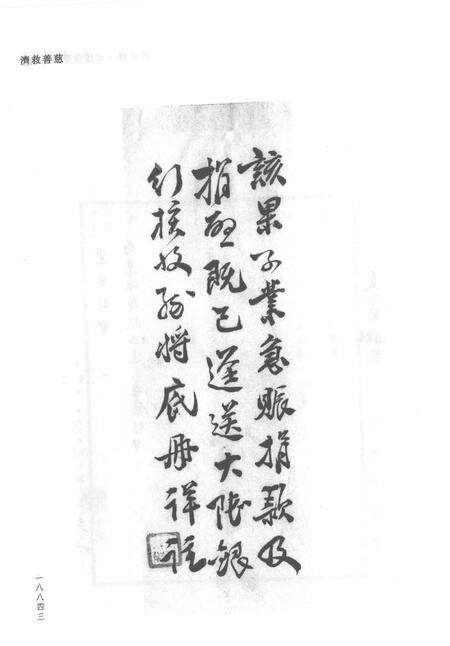 慈善救濟
該果子業急賑捐款及
捐冊既已逕送大陸銀
行接收希將底冊詳註
一八八四三